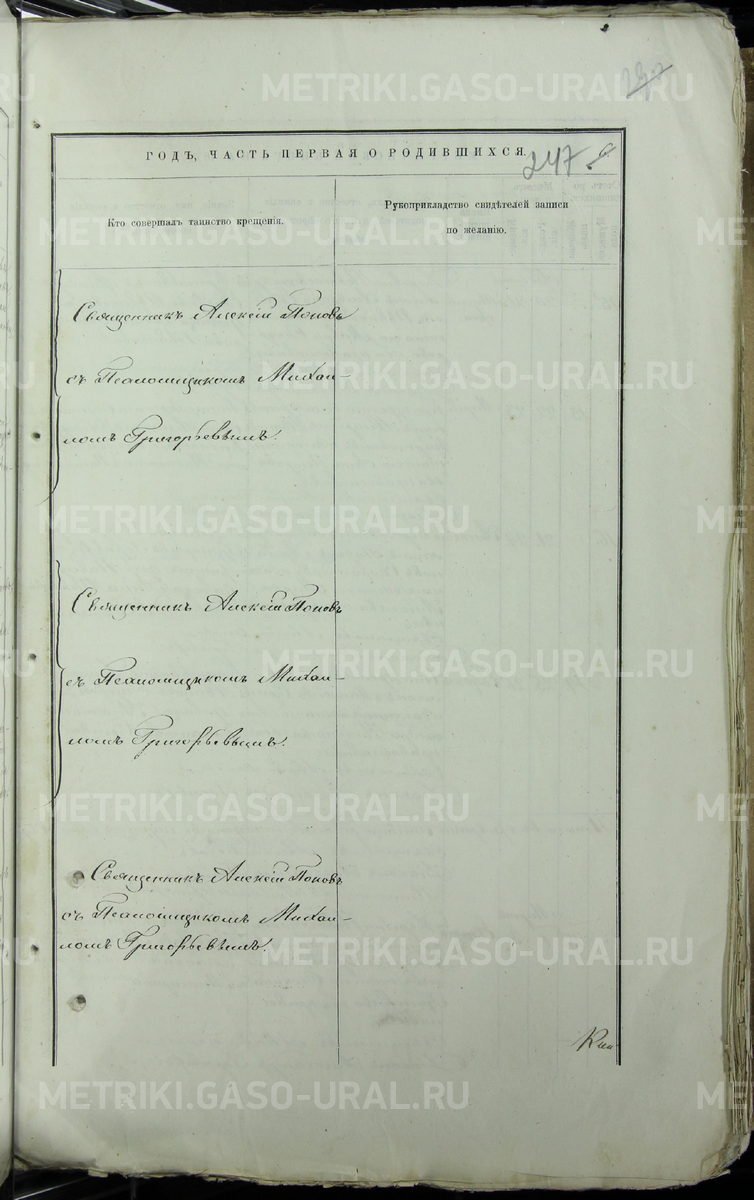 247
ГОДЪ, ЧАСТЬ ПЕРВАЯ О РОДИВШИХСЯ.
Кто совершалъ таинство крещенія.
Рукоприкладство свидѣтелей записи
по желанію.
Священникъ Алексій Поповъ
съ Псаломщикомъ Михаи-
ломъ Григорьевымъ.
Священникъ Алексій Поповъ
съ Псаломщикомъ Михаи-
ломъ Григорьевымъ.
Священникъ Алексій Поповъ
съ Псаломщикомъ Михаи-
ломъ Григорьевымъ.
METRIKI.GASO-URAL.RU